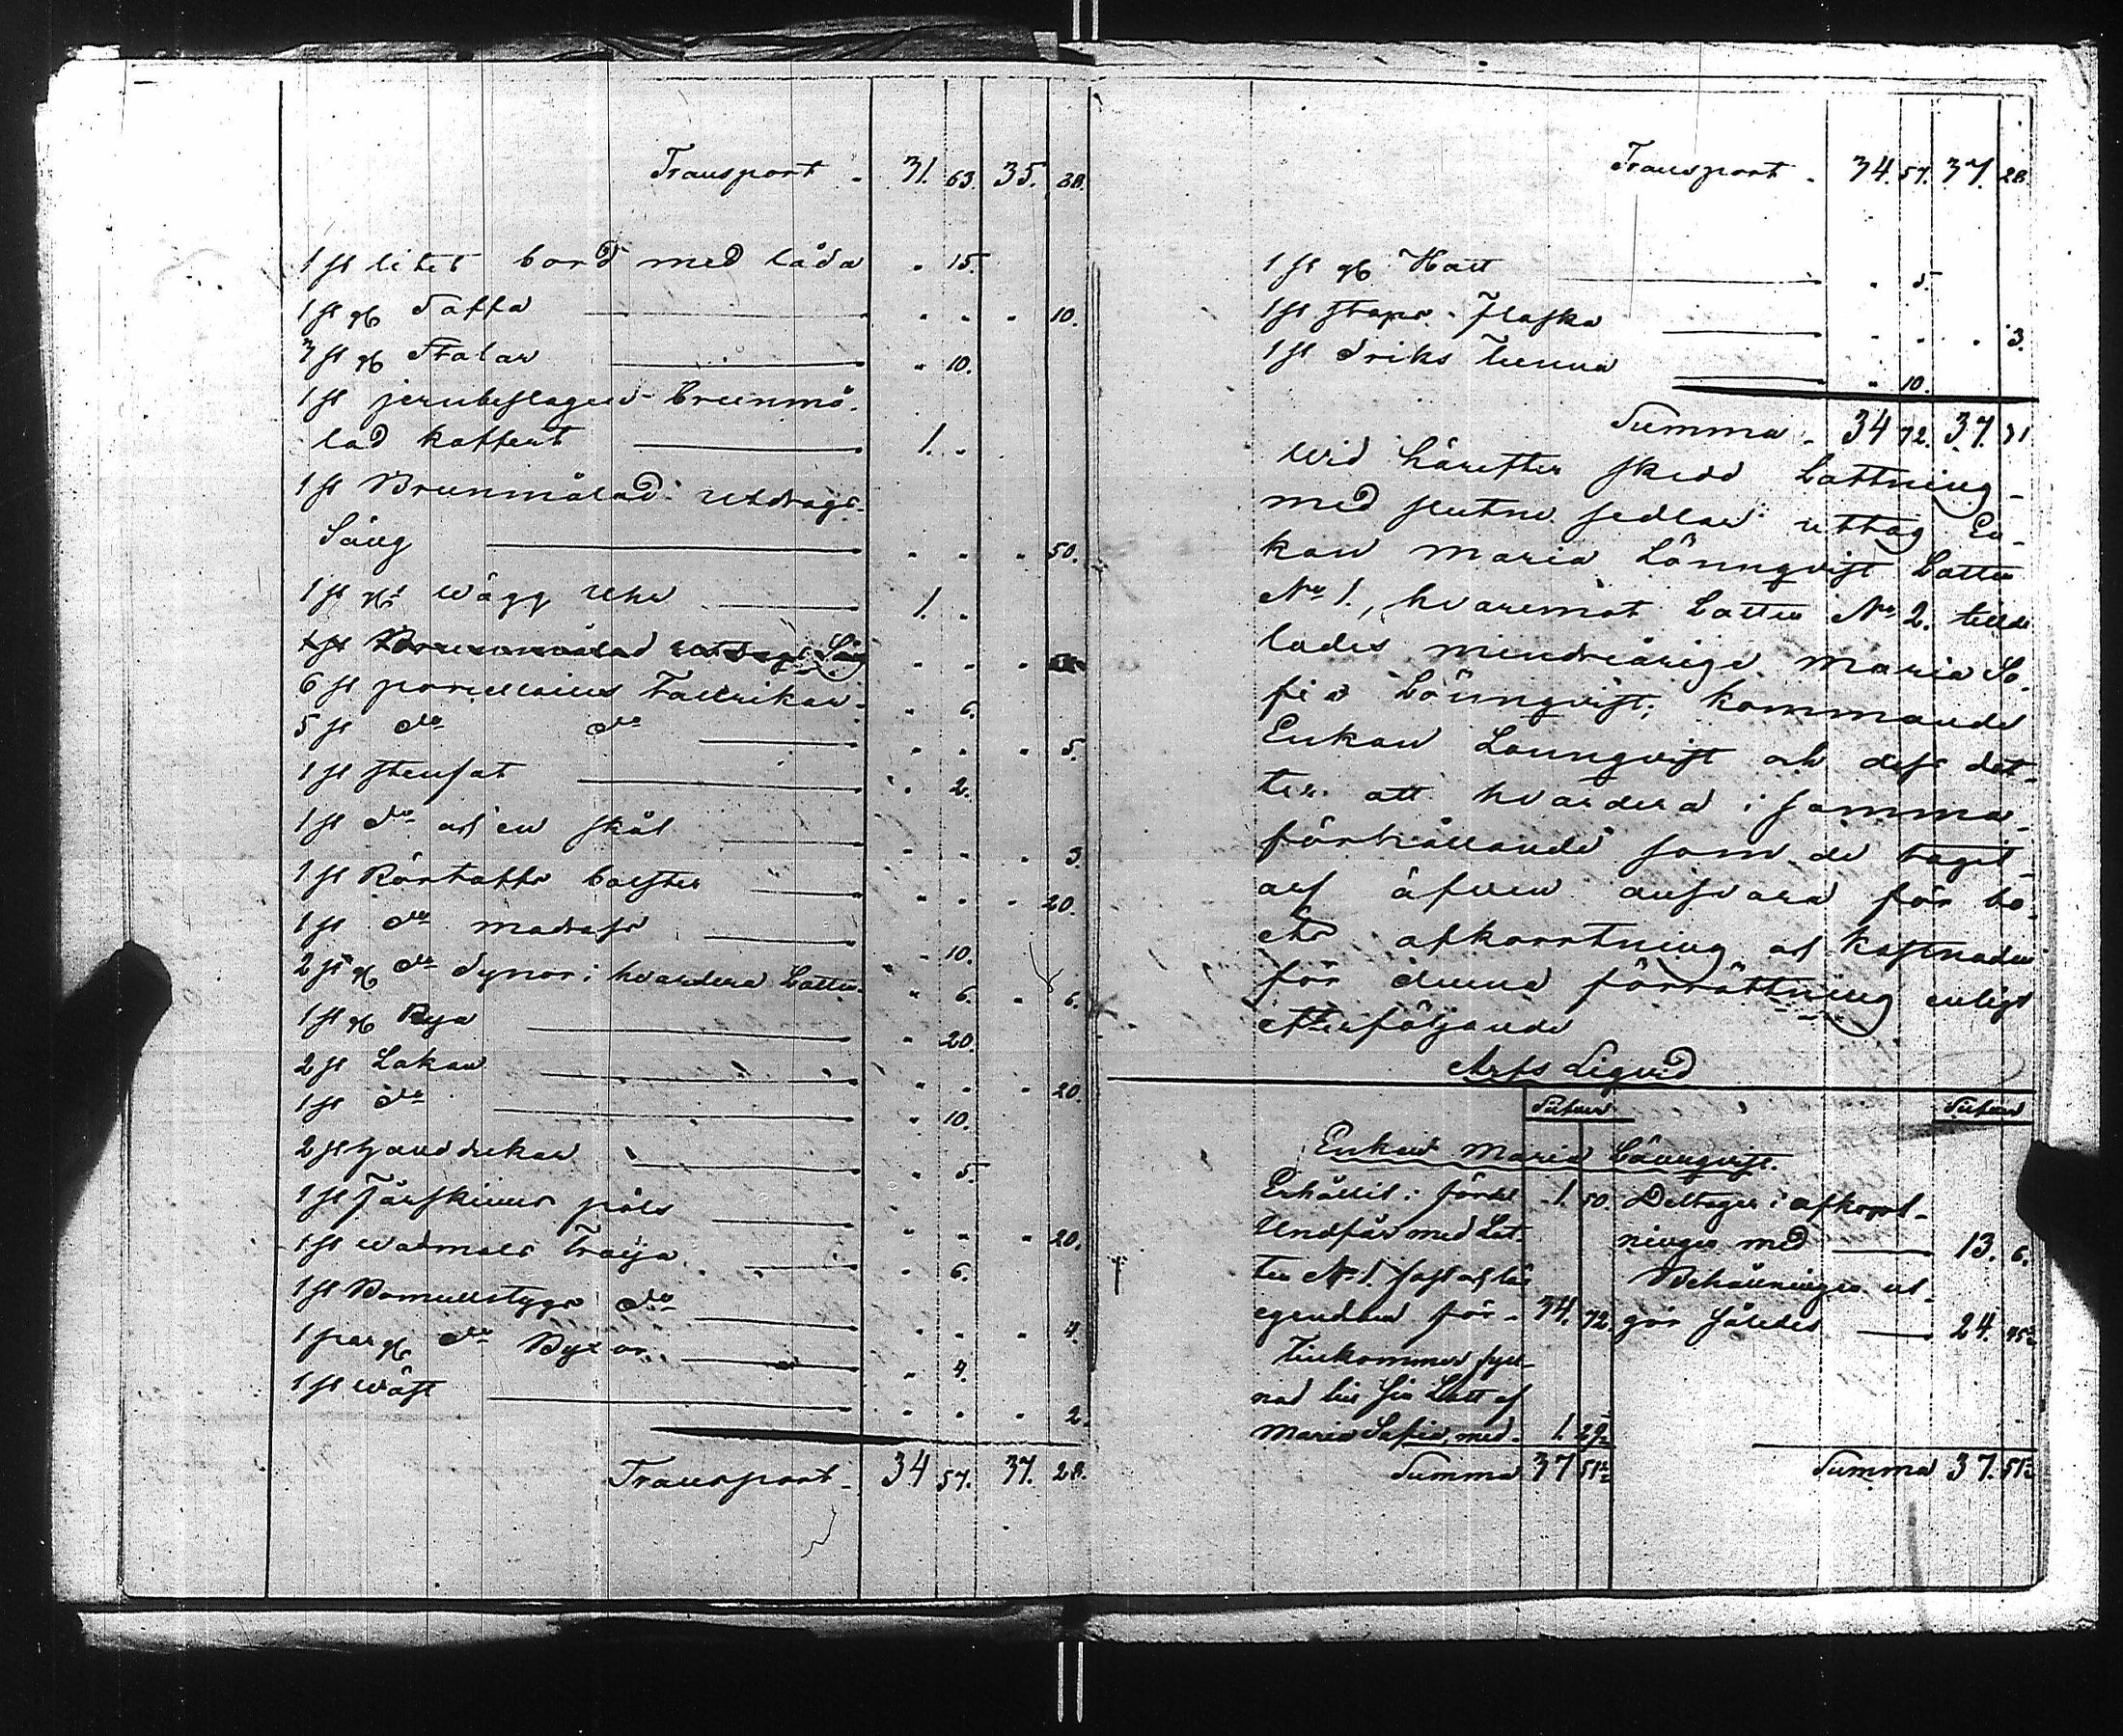 Transport - 31. 63. 35. 28.
1 st litet bord med låda " 15.
1 st gl Soffa " " " 10.
3 st gl Stolar " 10.
1 st jernbeslagen brunmå-
lad koffert 1. "
1 st Brunmålad utdrags-
Säng " " " 50.
1 st gl wägg Uhr 1. "
1 st Brunmålad utdrags Säng " " "
6 st porcellains Tallrikar " 6.
5 st do do " " " 5.
1 st stenfat " 2.
1 st do och en skål " " " 3.
1 st bolster " " " 20.
1 st do madrass " 10.
2 st gl do dynor i hvardera Lotten " 6. " 6.
1 st gl Rya " 20.
2 st Lakan " " " 20.
1 st do " 10.
2 st handdukar " 5.
1 st Fårskinns päls " " " 20.
1 st wadmals Tröija " 6.
1 st Bomullstygs do " " " 4.
1 par gl do Byxor " 4.
1 st wäst " " " 2.
Transport - 34 57. 37. 28.
Transport - 34. 57. 37. 28.
1 st gl Hatt " 5
1 st stops Flaska " " " 3.
1 st driks Tunna " 10.
Summa - 34 72. 37. 31
wid härefter skedd Lottning
med slutne sedlar uttog En-
kan Maria Lönnqvist Lotten
No 1., hvaremot Lotten No 2. tilldе-
lades minderåriga Maria So-
fia Lönnqvist; kommande
Enkan Lönnqvist och dess dot-
ter att hvardera i samma
förhållande som de tagit
arf äfven ansvara för bo-
ets afkortning och kostnaden
för denna förrättning enligt
efterföljande
Arfs Liqvid
Enkan Maria Lönnqvist.
Erhållit i fördel 1. 50.
Undfår med Lot-
ten No 1. fast och lös
egendom för - 34. 72.
Tillkommer fyll-
nad till sin Lott af
Maria Sofia, med - 1. 29½
Summa 37 51½
Deltager i afkort-
ningen med 13. 6.
Behållningen ut-
gör således 24. 45½
Summa 37. 51½